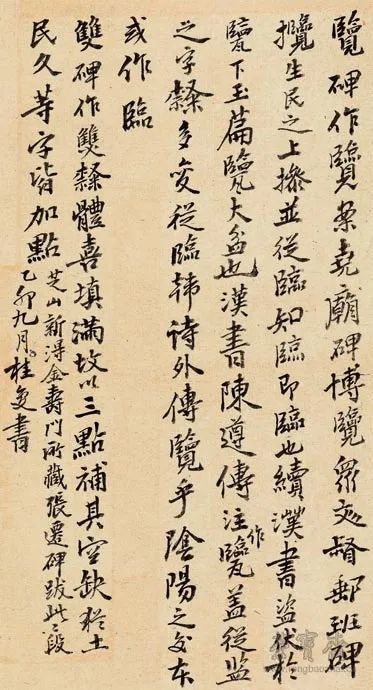 覽碑作覽案堯廟碑博覽眾文督郵班碑
攬生民之上撡並從臨知臨即臨也續漢書盜伏於
㼜下玉篇㼜大盆也漢書陳遵傳注作㼜蓋從監
之字隸多变從臨韩诗外傳覽乎陰陽之交本
或作臨
雙碑作雙隸體喜填滿故以三點補其空缺猶土
民父等字皆加點
芝山新得金壽門所藏張遷碑跋此二段
乙卯九月桂复書